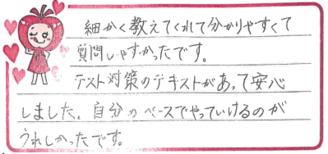 細かく教えてくれて分かりやすくて
質問しやすかったです。
テスト対策のテキストがあって安心
しました。自分のペースでやっていけるのが
うれしかったです。